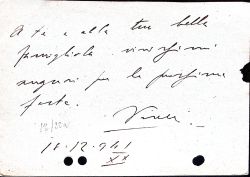 A te e alla tua bella
famigliola vivissimi
auguri per le prossime
feste.
11.12.941
XX